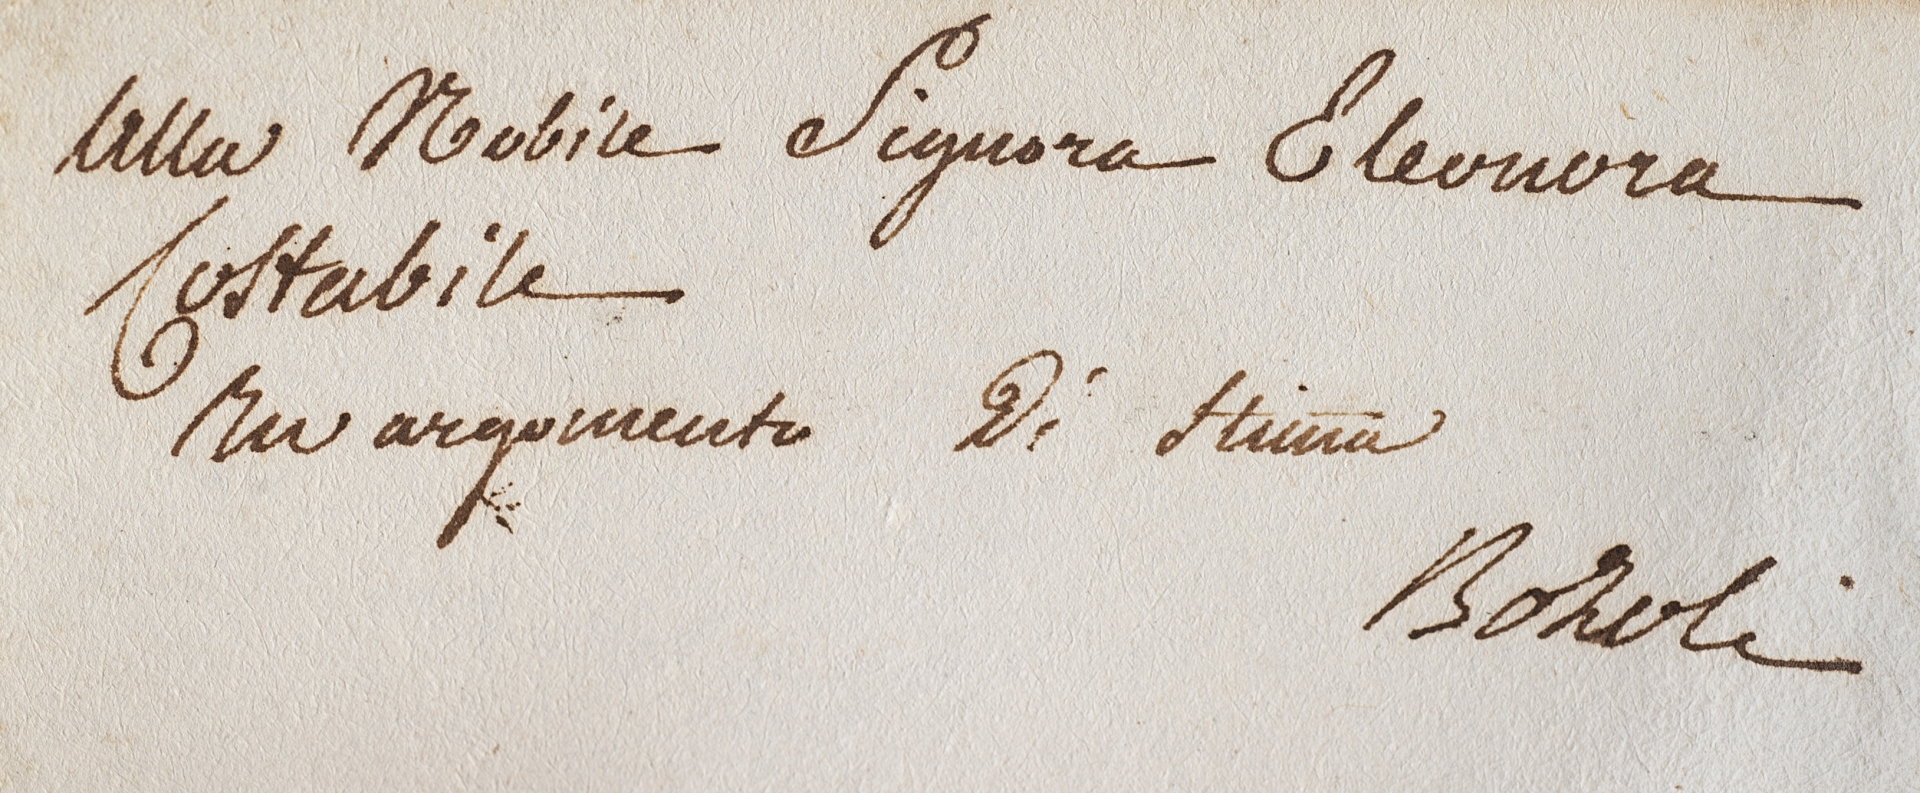 Alla Nobile Signora Eleonora
Costabile
In argomento Di stima
Bozoli